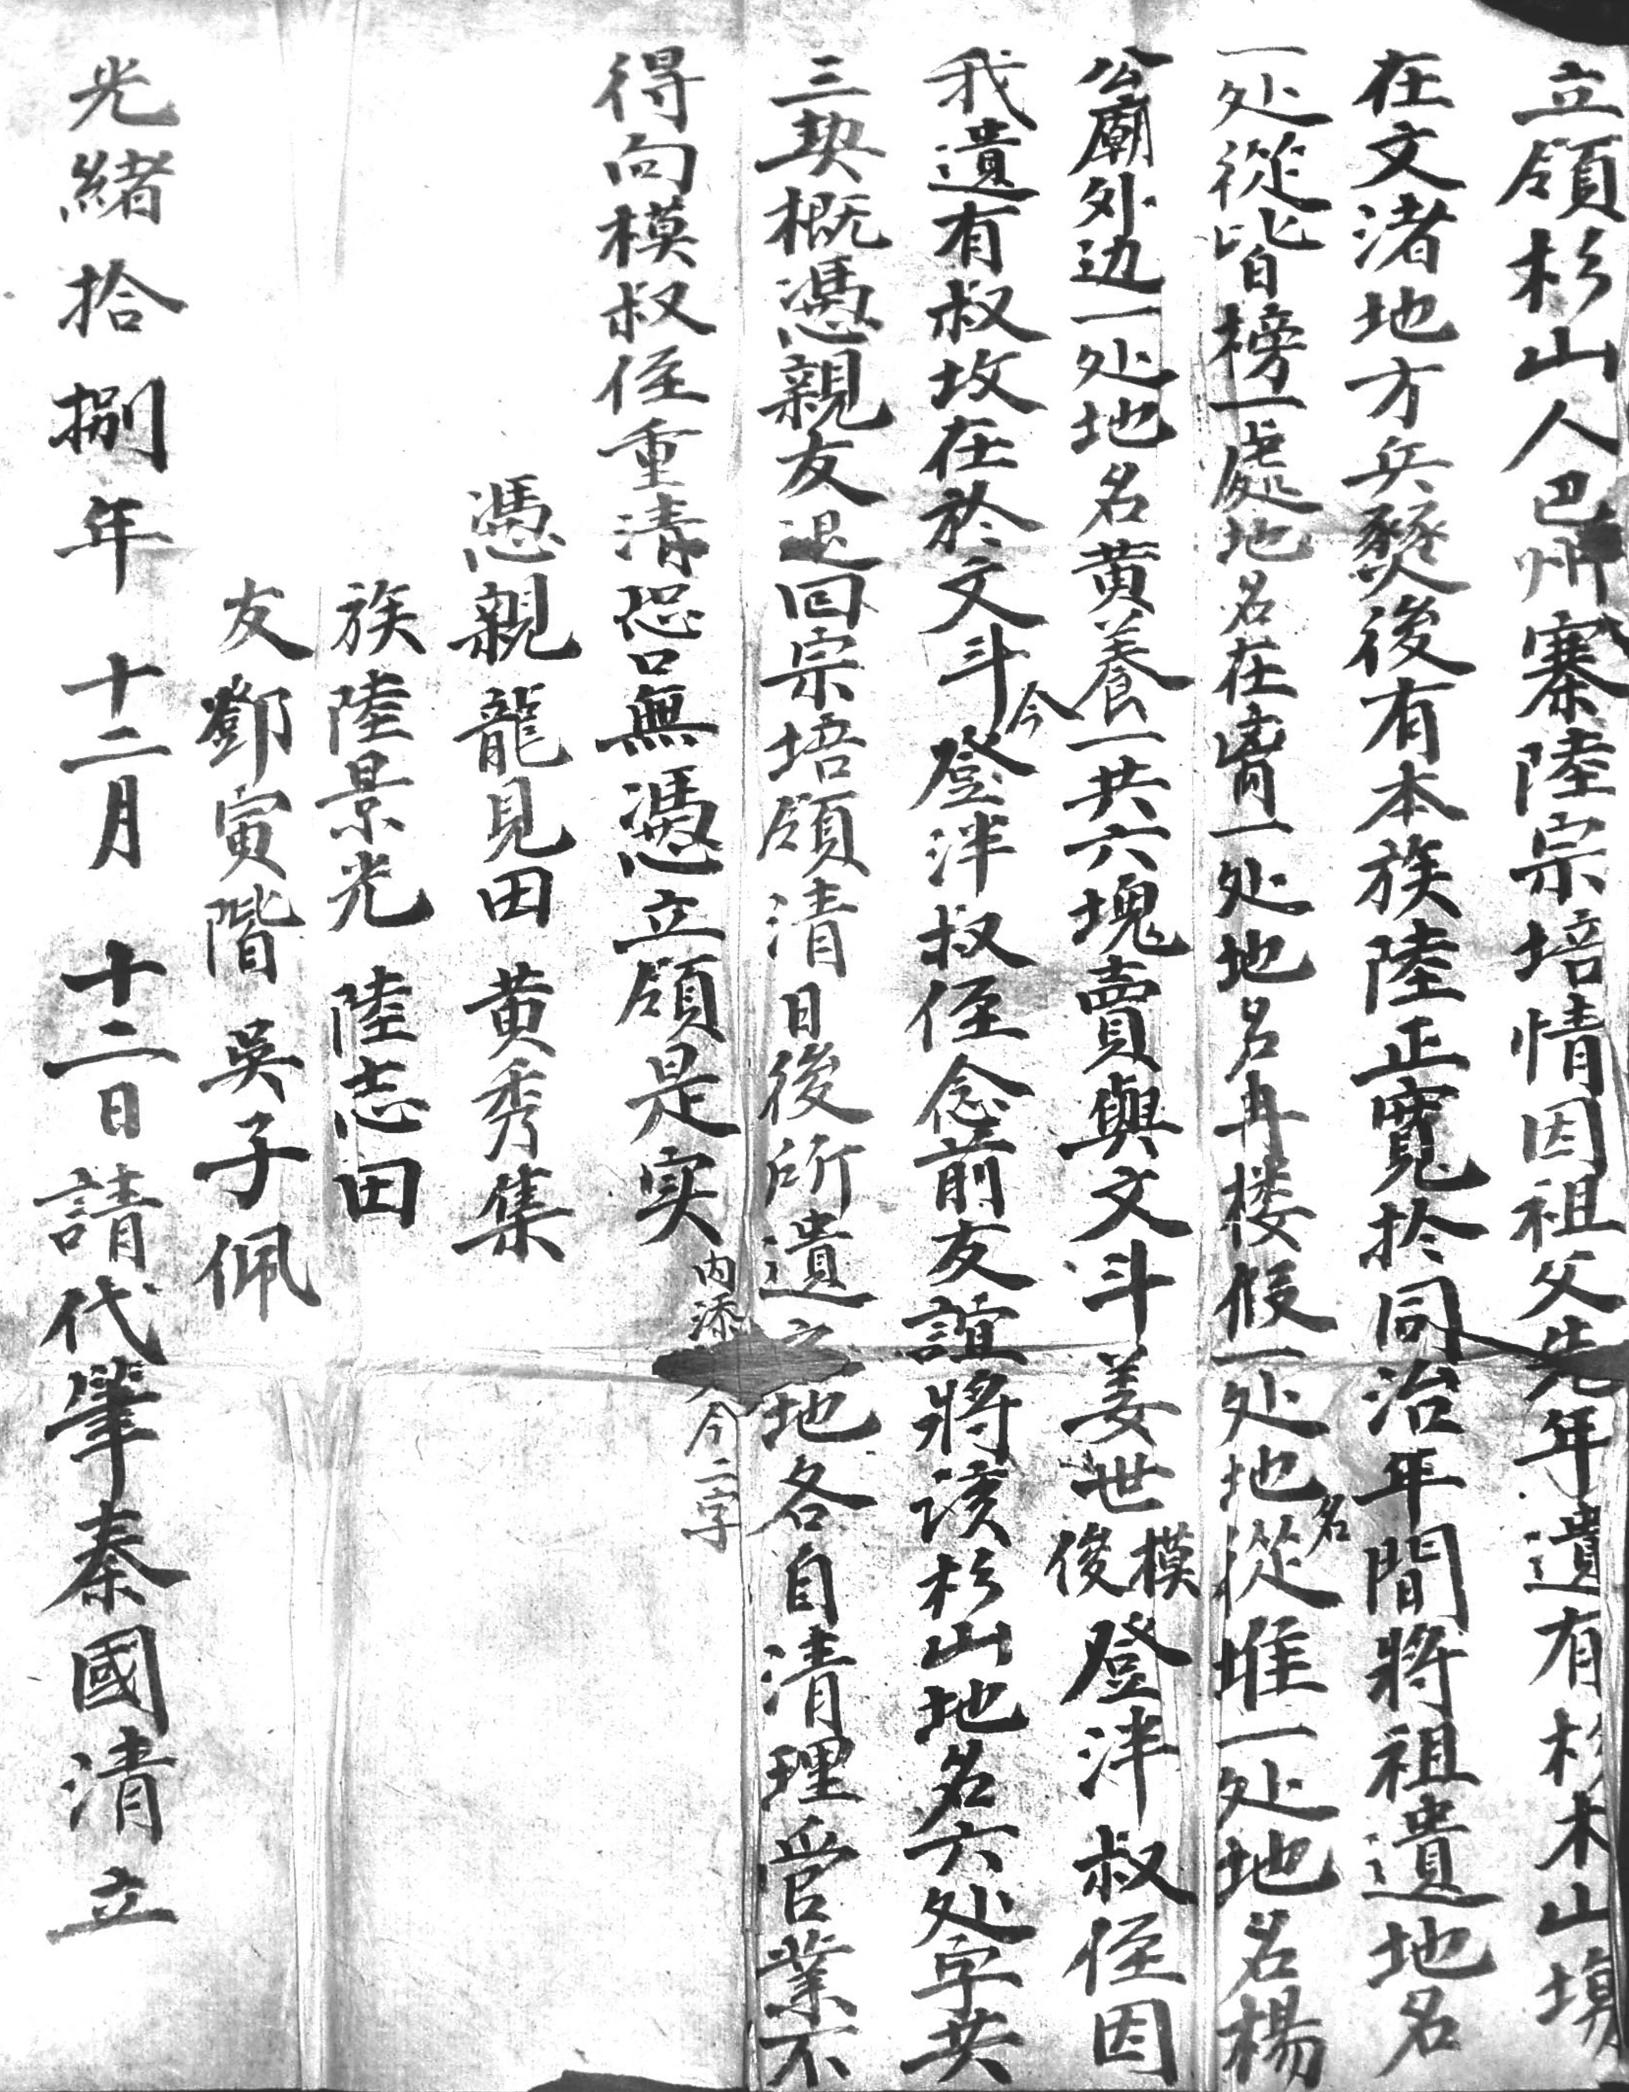 立領杉山人巴州寨陸宗培情因祖父先年遺有杉木山塲
在文渚地方兵燹後有本族陸正寬於同治年間將祖遺地名
一处從皆榜一處地名在膏一处地名冉楼假一处地名從堆一处地名楊
公廟外边一处地名黄養一共六塊賣與文斗姜世模俊登泮叔侄因
我遺有叔坟在於文斗今登泮叔侄念前友誼將该杉山地名六处字共
三契概憑親友退回宗培領清日後所遺之地各自清理管業不
得向模叔侄重清恐口無憑立領是实
内添 今二字
憑親龍見田 黄秀集
族陸景光 陸志田
友鄧寅階 吳子佩
光緒拾捌年 十二月 十二日請代筆秦國清立